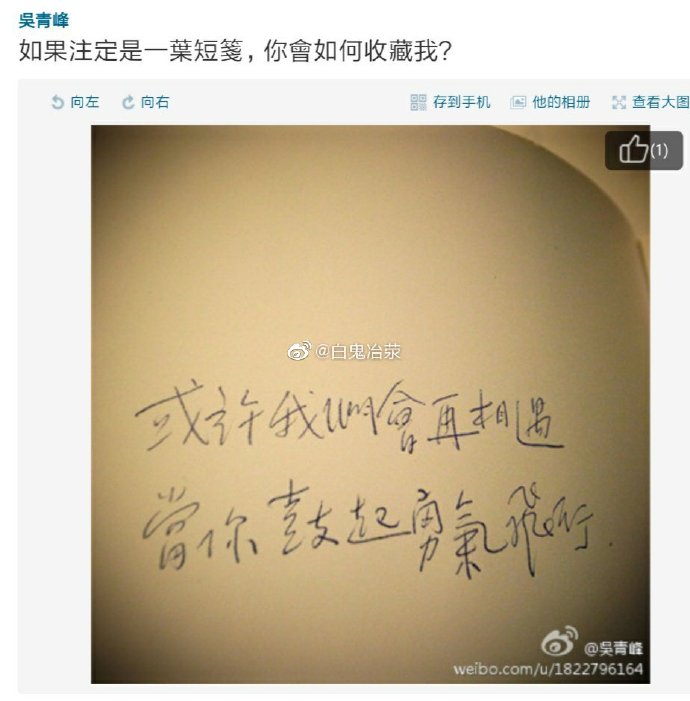 吳青峰
如果注定是一葉短箋，你會如何收藏我？
向左 向右 存到手机 他的相册 查看大图
(1)
@白鬼冶荥
或許我們會再相遇
當你鼓起勇氣飛行.
@吳青峰
weibo.com/u/1822796164